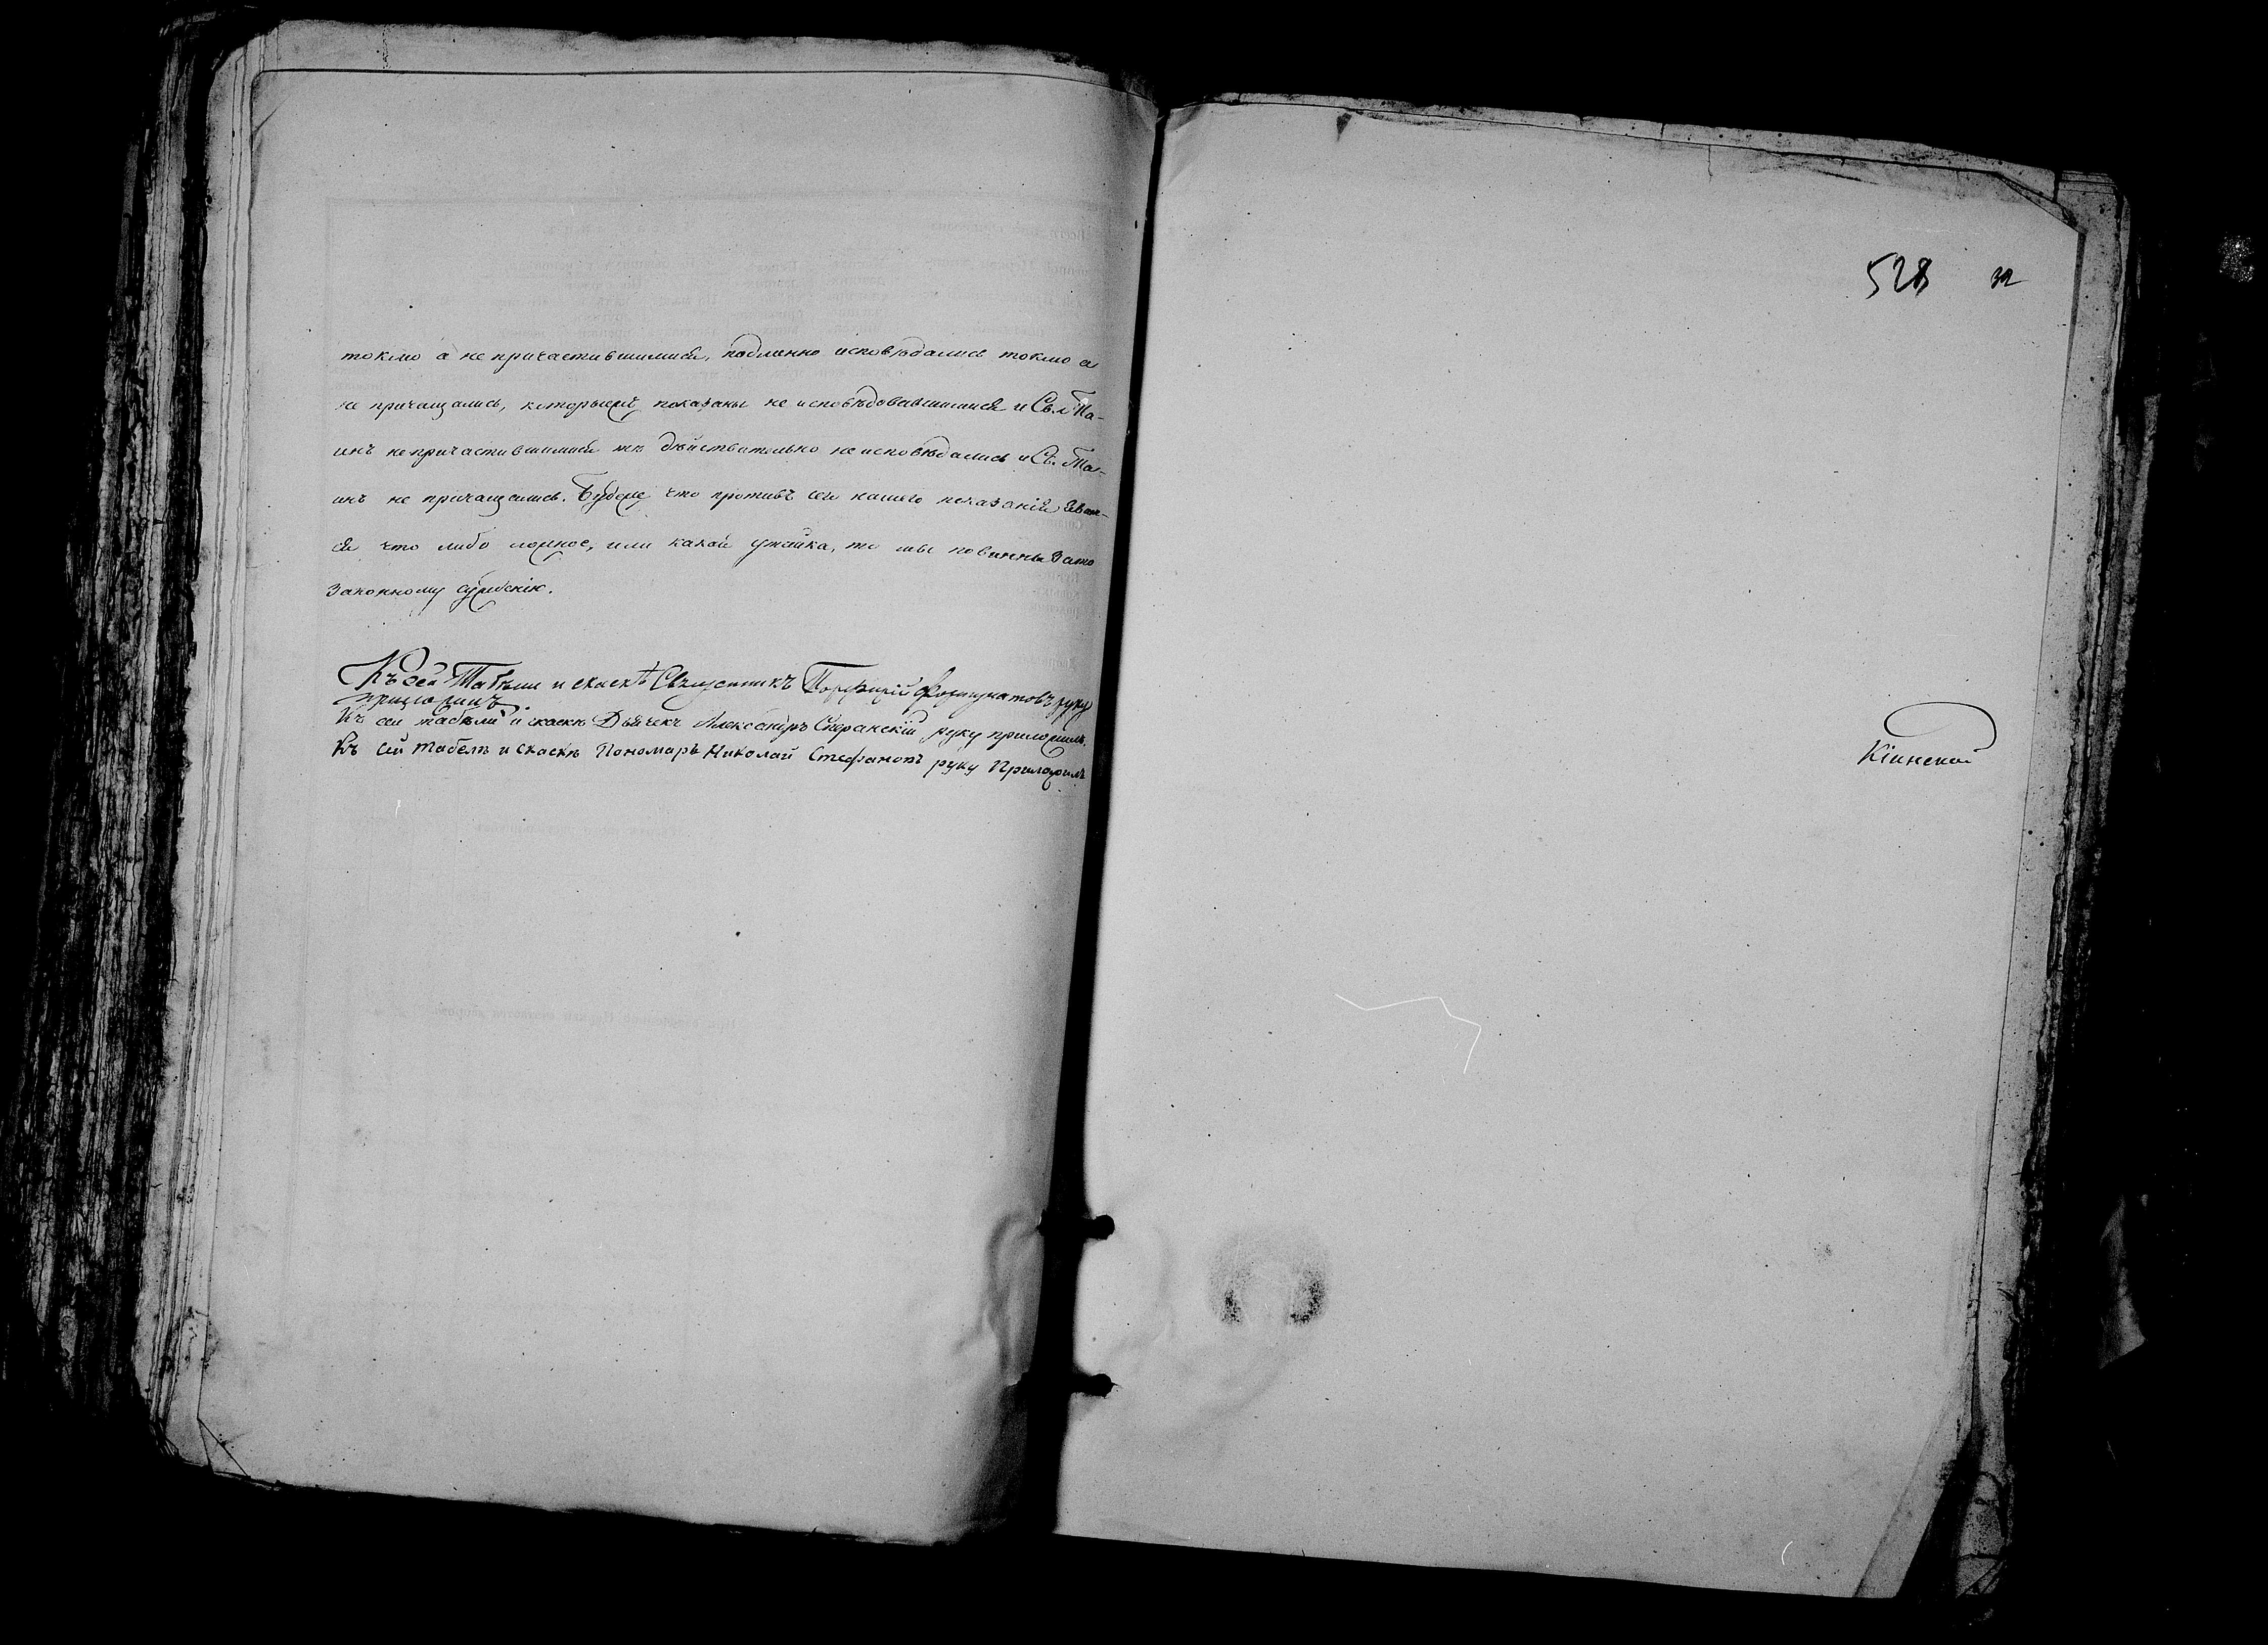 токмо а не причастившимися, подлинно исповѣдались токмо а
не причащались, которыежъ показаны не исповѣдовавшимися и Св. Та-
инъ не причастившимися тѣ дѣйствительно не исповѣдались и Св. Та-
инъ не причащались. Будеже что противъ сего нашего показанія явит-
ся что либо ложное, или какая утайка, то мы повинны
законному сужденію.
Къ сей Табели и скаскѣ Священникъ Порфирій Фортунатовъ руку
приложилъ.
Къ сей табели и скаскѣ Дьячекъ Александръ Сперанскій руку приложилъ.
Къ сей табелѣ и скаскѣ Пономарь Николай Стефановъ руку Приложилъ
528 32